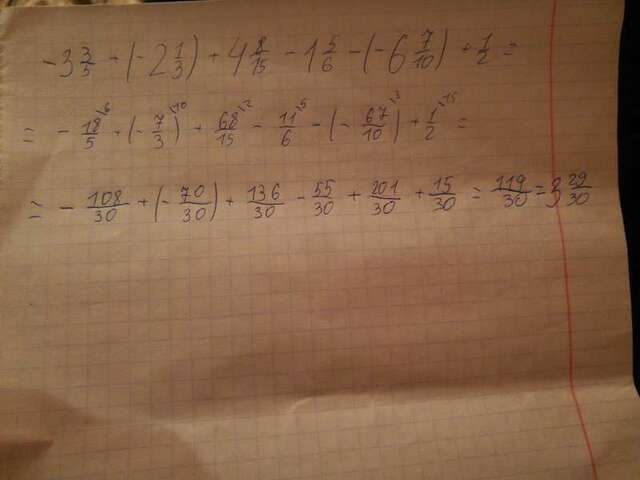 -3 3/5 + (-2 1/3) + 4 8/15 - 1 5/6 - (-6 7/10) + 1/2 =
= - 18/5 \6 + (- 7/3 \10) + 68/15 \2 - 11/6 \5 - (- 67/10 \3) + 1/2 \15 =
= - 108/30 + (- 70/30) + 136/30 - 55/30 + 201/30 + 15/30 = 119/30 = 3 29/30